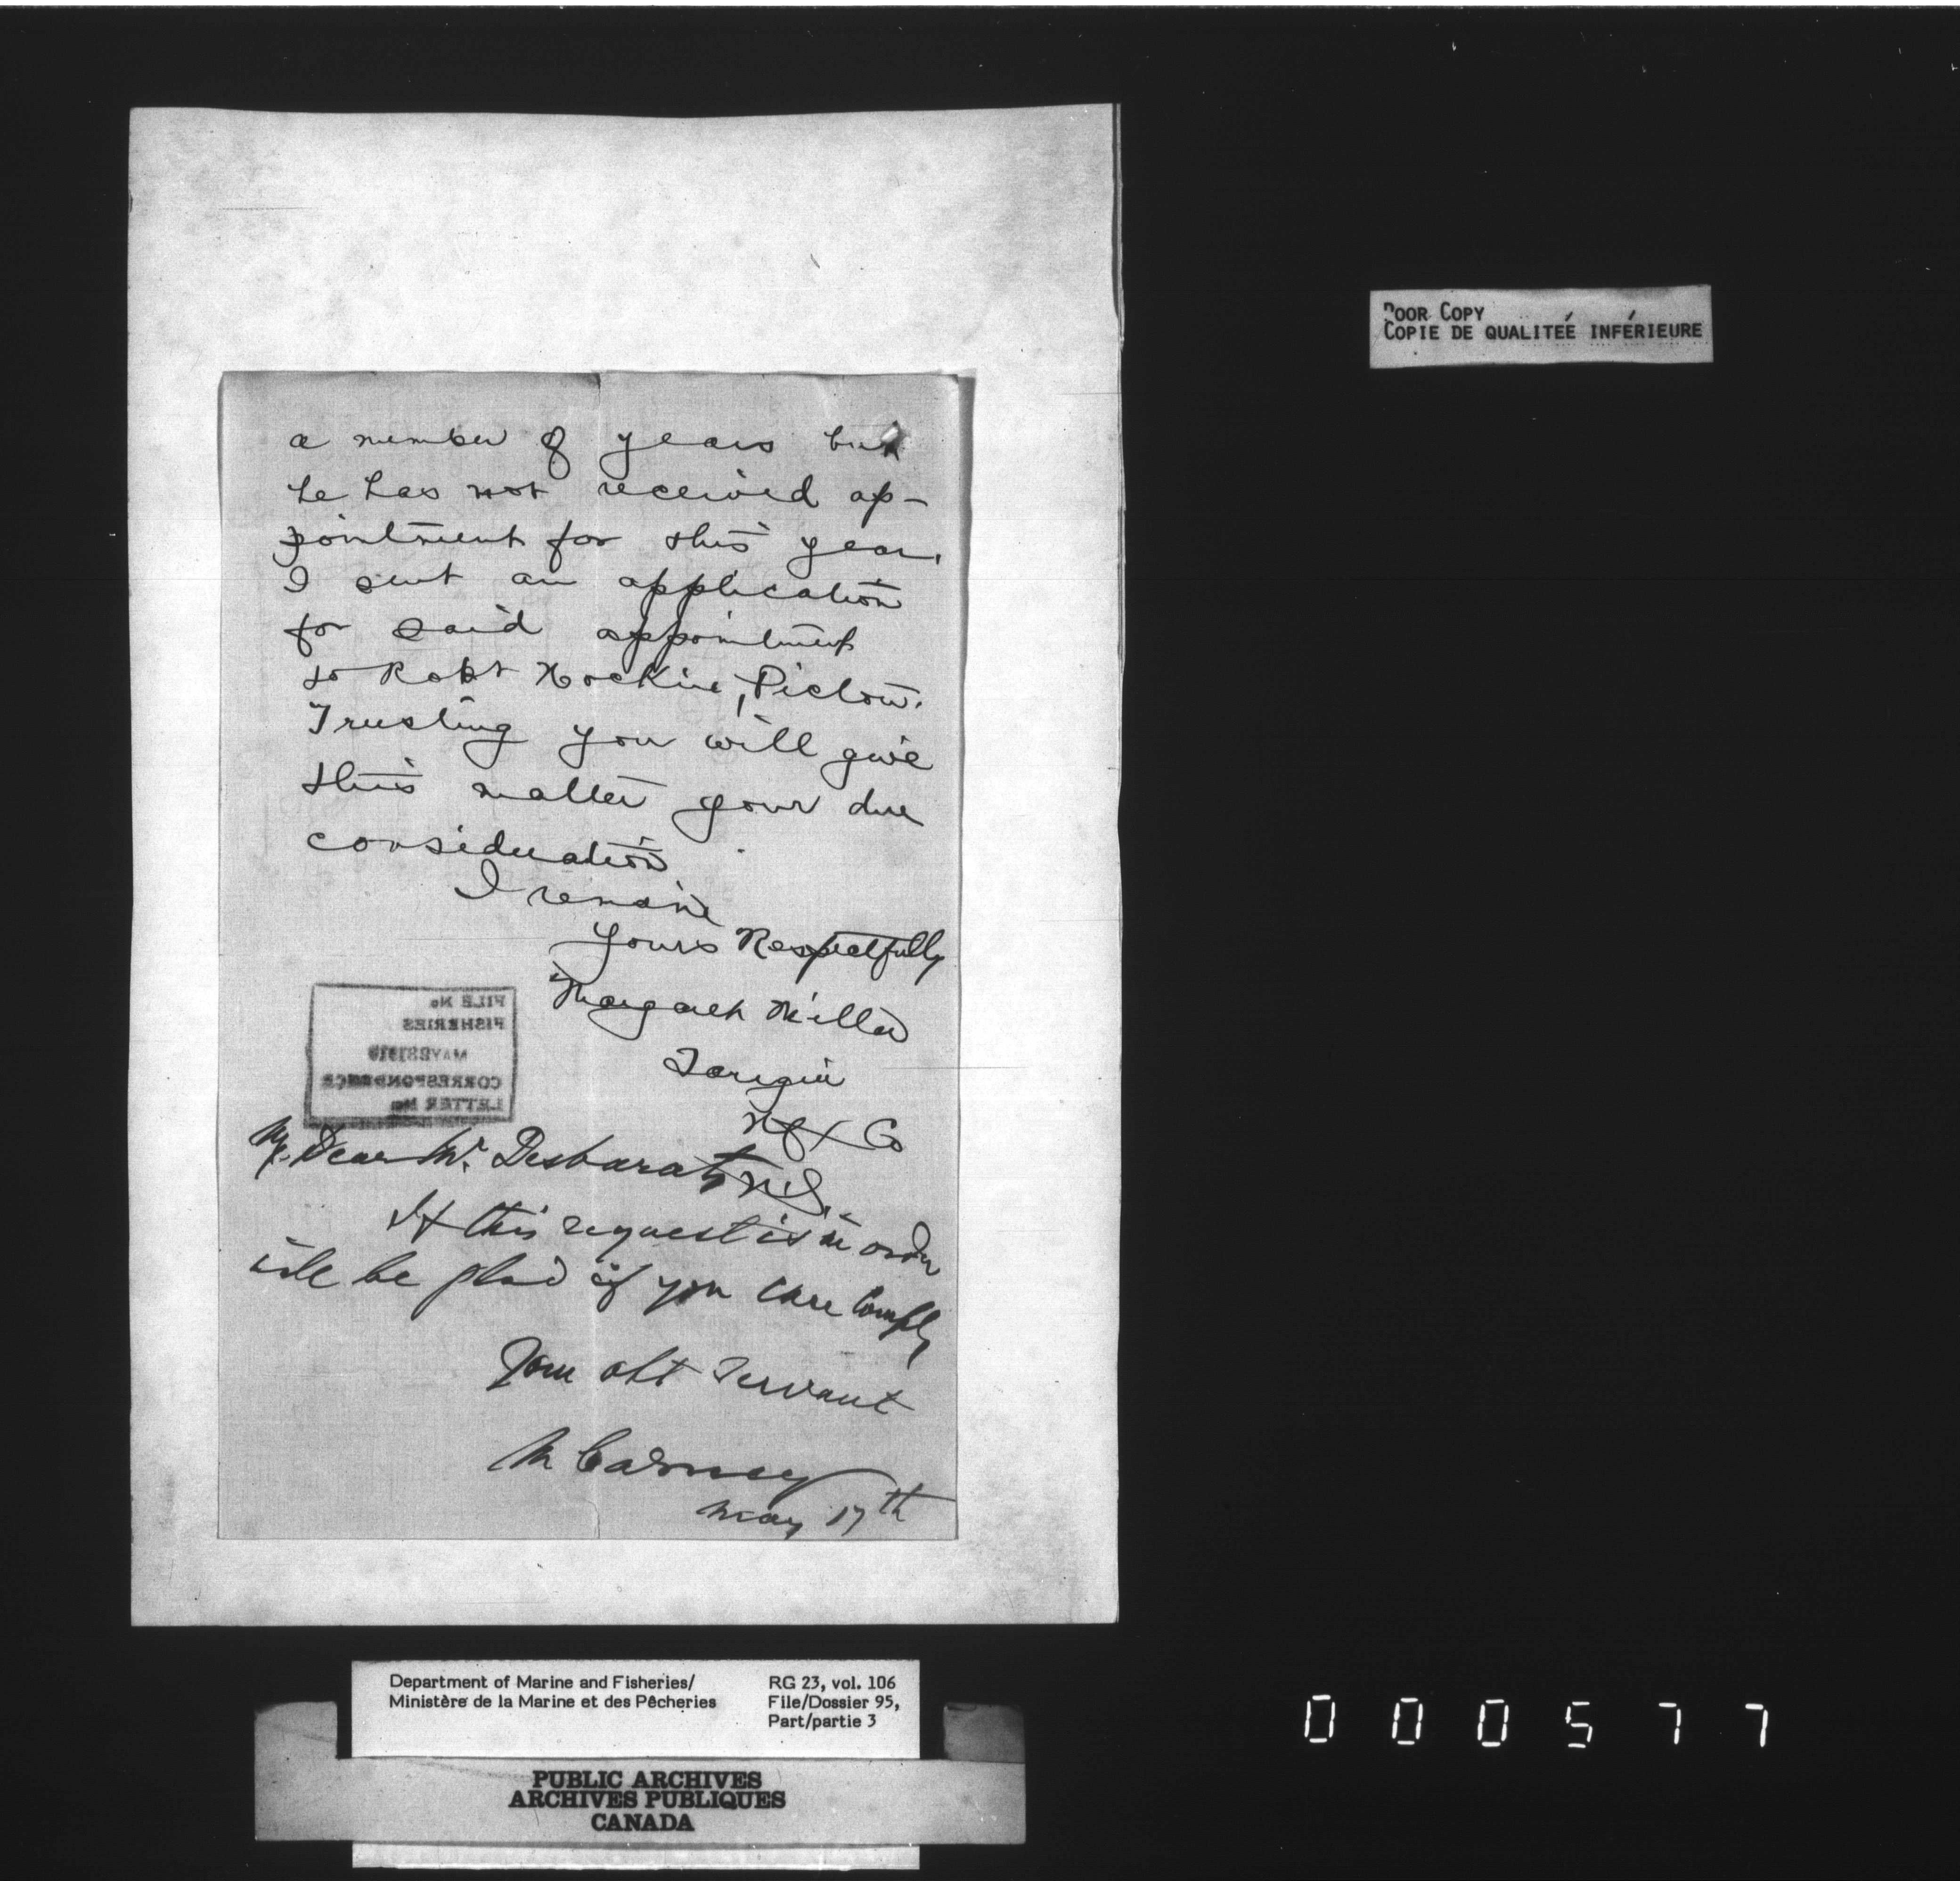 a number of years but
he has not received ap-
pointment for this year.
I sent an application
for said appointment
to Robt Hockin, Pictou.
Trusting you will give
this matter your due
consideration.
I remain
Yours Respectfully
Margaret Miller
Tangier
Hfx Co
N.S.
FILE No
FISHERIES
MAY
CORRESPONDENCE
LETTER No.
My Dear Mr. Desbarats
If this request is in order
will be glad if you can comply
Your obt Servant
M Carney
May 17th
POOR COPY
COPIE DE QUALITEÉ INFÉRIEURE
Department of Marine and Fisheries/
Ministère de la Marine et des Pêcheries
RG 23, vol. 106
File/Dossier 95,
Part/partie 3
PUBLIC ARCHIVES
ARCHIVES PUBLIQUES
CANADA
000577